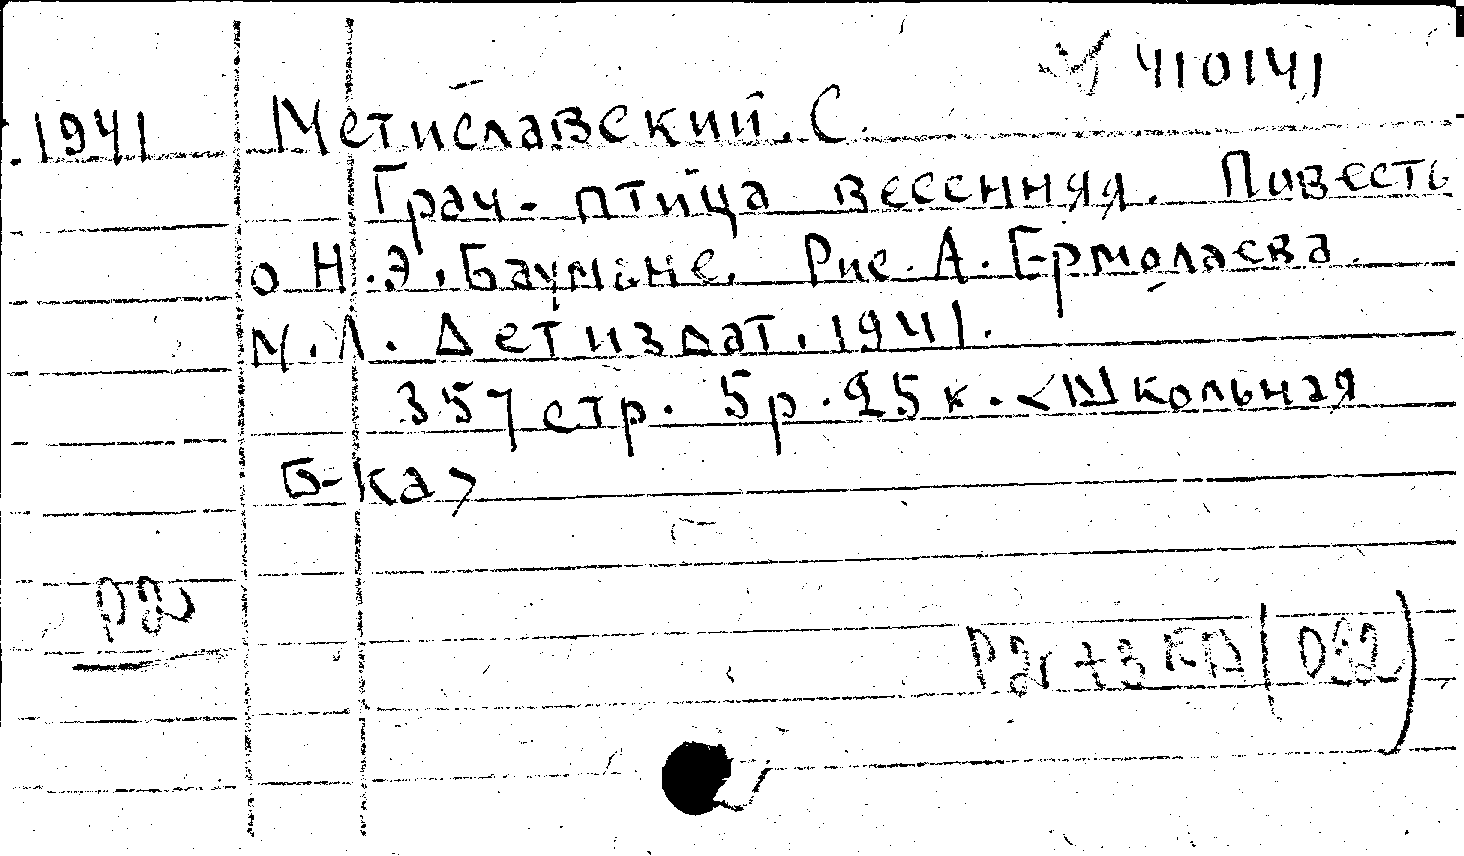 410141
1941 Мстиславский. С.
Грач - птица весенняя. Повесть
о Н.Э. Баумане. Рис. А. Ермолаева.
М.Л. Детиздат. 1941.
357 стр. 5 р. 25 к. <Школьная
б-ка>
Р2
Р2 + 3КП (092)